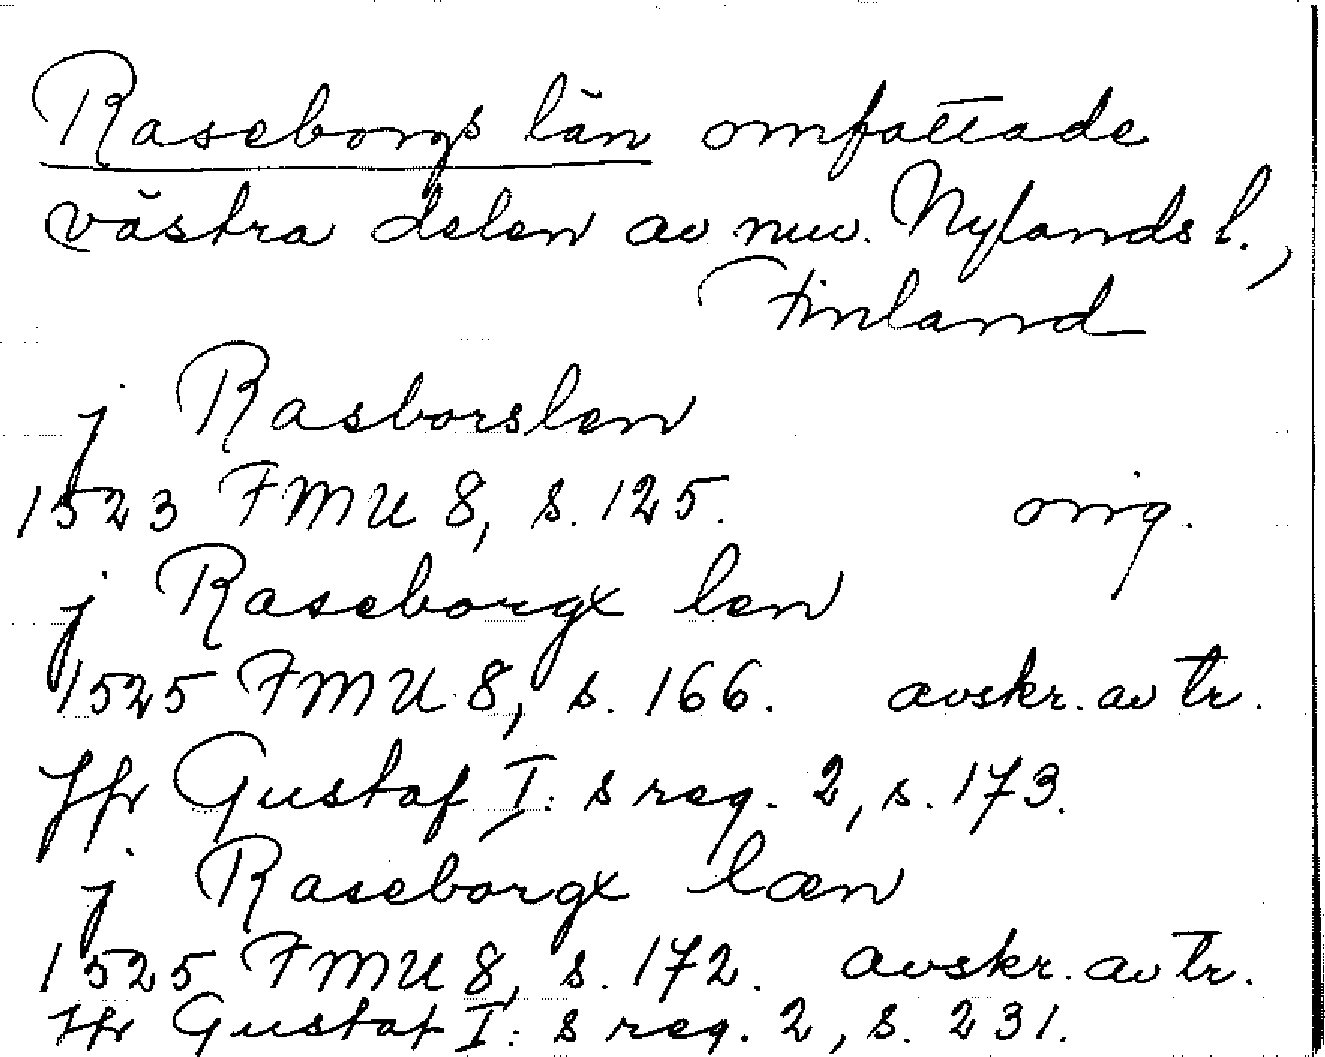 Raseborgs län omfattade
västra delen av nuv. Nylands l.,
Finland
j Rasborslen
1523 FMU 8, s. 125. orig.
j Raseborgx len
1525 FMU 8, s. 166. avskr. av tr.
Jfr Gustaf I: s reg. 2, s. 173.
j Raseborgx læn
1525 FMU 8, s. 172. avskr. av tr.
Jfr Gustaf I: s reg. 2, s. 231.